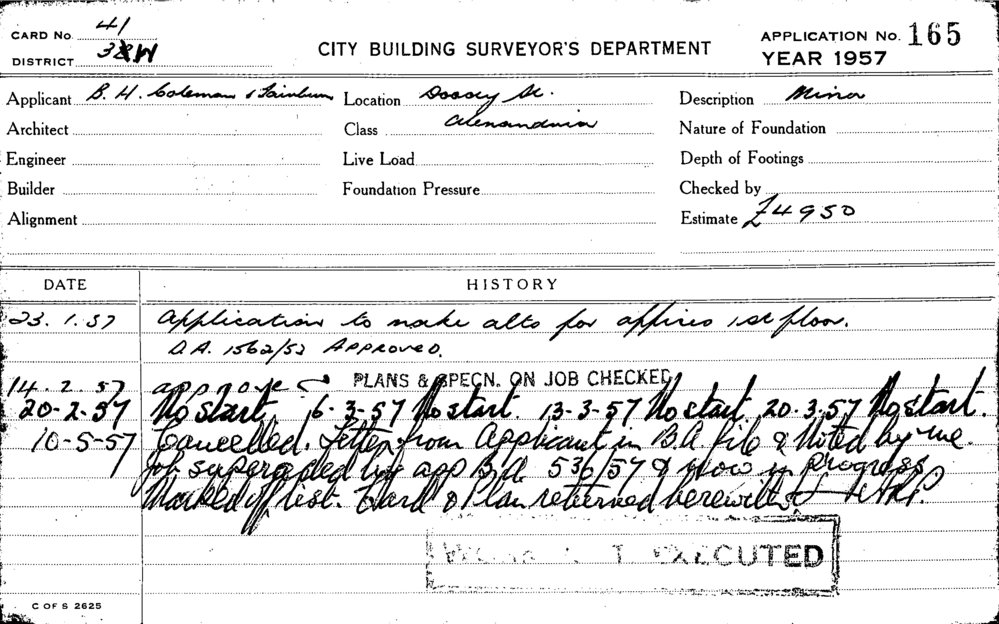 CARD No. 41
DISTRICT 38W
CITY BUILDING SURVEYOR'S DEPARTMENT
APPLICATION No. 165
YEAR 1957
Applicant B. H. Coleman & Fairburn Location Dossey St. Description Minor
Architect Class Alexandria Nature of Foundation
Engineer Live Load Depth of Footings
Builder Foundation Pressure Checked by
Alignment Estimate £4950
DATE HISTORY
23.1.57 Application to make alts for offices 1st floor.
D.A. 1562/52 APPROVED.
14.2.57 approve PLANS & SPECN. ON JOB CHECKED
20-2-57 No start. 6-3-57 No start. 13-3-57 No start. 20.3.57 No start.
10-5-57 Cancelled. Letter from Applicant in B.A. file & Noted by me.
Job superseded by app B.A. 536/57 & now in Progress
Marked off list. Card & Plan returned herewith
WORK NOT EXECUTED
C OF S 2625